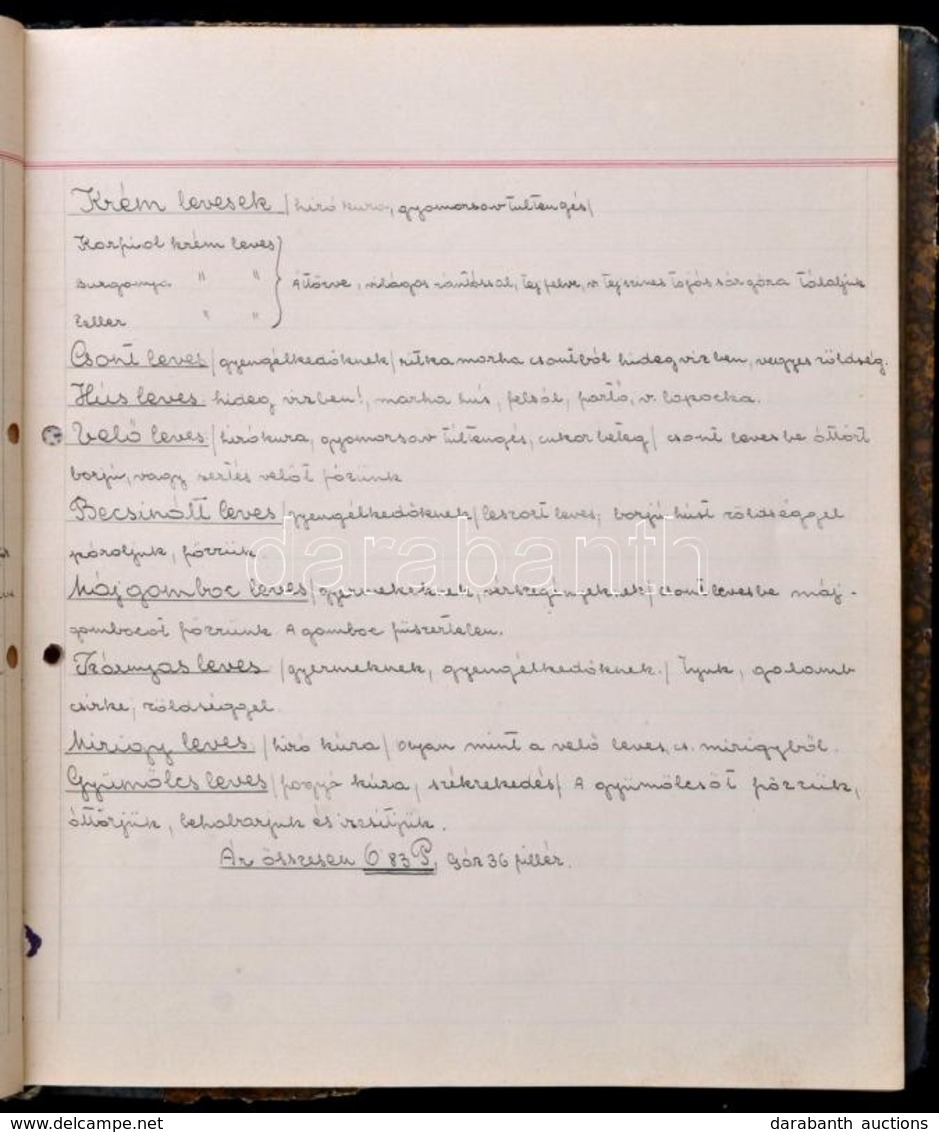 Krém levesek /hízó kura, gyomorsav tultengés/
Karfiol krém leves
Burgonya " "
Zeller " "
Áttörve, világos rántással, tej felve, v. tejszines tojás sárgára tálaljuk
Csont leves /gyengélkedőknek/ ritka marha csontból hideg vizben, vegyes zöldség.
Hús leves hideg vizben!, marha hús, felsál, fartő, v. lapocka.
Velő leves /hízókura, gyomorsav túltengés, cukor beteg/ csont levesbe áttört
borjú, vagy sertés velőt főzünk
Becsinált leves /gyengélkedőknek/ leszort leves, borjú húst zöldséggel
pároljuk, főzzük
Máj gomboc leves /gyermekeknek, vérszegényeknek/ csont levesbe máj-
gombocot főzzünk. A gomboc füszertelen.
Szárnyas leves /gyermeknek, gyengélkedőknek./ tyuk, galamb
csirke, zöldséggel
Mirigy leves /hízó kúra/ olyan mint a velő leves, cs. mirigyből.
Gyümölcs leves /fogyó kúra, székrekedés/ A gyümölcsöt főzzük,
áttörjük, behabarjuk és izesitjük.
Ár összesen 0 83 P, Gáz 36 fillér.
darabanth
© www.delcampe.net
darabanth auctions